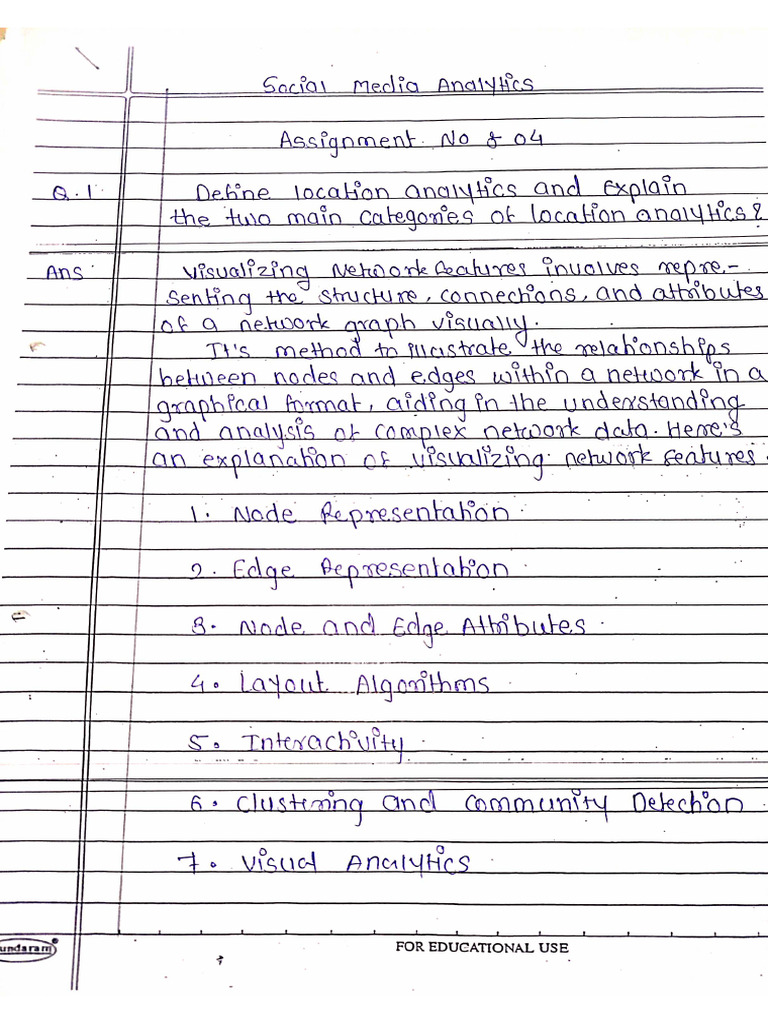 Social Media Analytics
Assignment No : 04
Q.1 Define location analytics and explain
the two main categories of location analytics?
Ans: Visualizing Network features involves repre-
senting the structure, connections, and attributes
of a network graph visually.
It's method to illustrate the relationships
between nodes and edges within a network in a
graphical format, aiding in the understanding
and analysis of complex network data. Here's
an explanation of visualizing network features.
1. Node Representation.
2. Edge Representation.
3. Node and Edge Attributes.
4. Layout Algorithms.
5. Interactivity.
6. Clustering and Community Detection
7. Visual Analytics.
undaram
FOR EDUCATIONAL USE